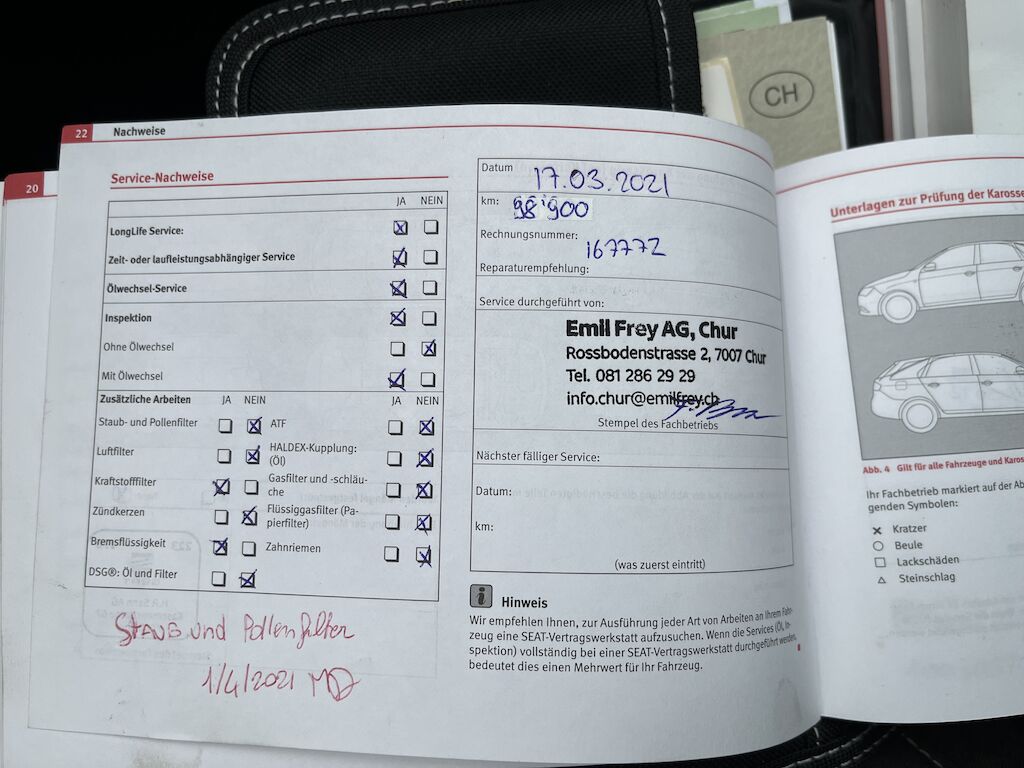 CH
22 Nachweise
20
Service-Nachweise
JA NEIN
LongLife Service:
Zeit- oder laufleistungsabhängiger Service
Ölwechsel-Service
Inspektion
Ohne Ölwechsel
Mit Ölwechsel
Zusätzliche Arbeiten JA NEIN JA NEIN
Staub- und Pollenfilter ATF
Luftfilter HALDEX-Kupplung:
(Öl)
Kraftstofffilter Gasfilter und -schläu-
che
Zündkerzen Flüssiggasfilter (Pa-
pierfilter)
Bremsflüssigkeit Zahnriemen
DSG®: Öl und Filter
Staub und Pollenfilter
1/4/2021 MD
Datum 17.03.2021
km: 98'900
Rechnungsnummer: 167772
Reparaturempfehlung:
Service durchgeführt von:
Emil Frey AG, Chur
Rossbodenstrasse 2, 7007 Chur
Tel. 081 286 29 29
info.chur@emilfrey.ch
Stempel des Fachbetriebs
Nächster fälliger Service:
Datum:
km:
(was zuerst eintritt)
i Hinweis
Wir empfehlen Ihnen, zur Ausführung jeder Art von Arbeiten an Ihrem Fahr-
zeug eine SEAT-Vertragswerkstatt aufzusuchen. Wenn die Services (Öl, In-
spektion) vollständig bei einer SEAT-Vertragswerkstatt durchgeführt werden,
bedeutet dies einen Mehrwert für Ihr Fahrzeug.
Unterlagen zur Prüfung der Karosse
Abb. 4 Gilt für alle Fahrzeuge und Karos
Ihr Fachbetrieb markiert auf der Ab
genden Symbolen:
Kratzer
Beule
Lackschäden
Steinschlag